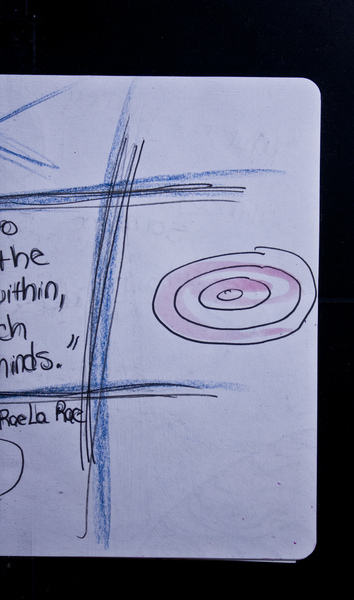 o
the
within,
ch
minds."
RaeLa Rae